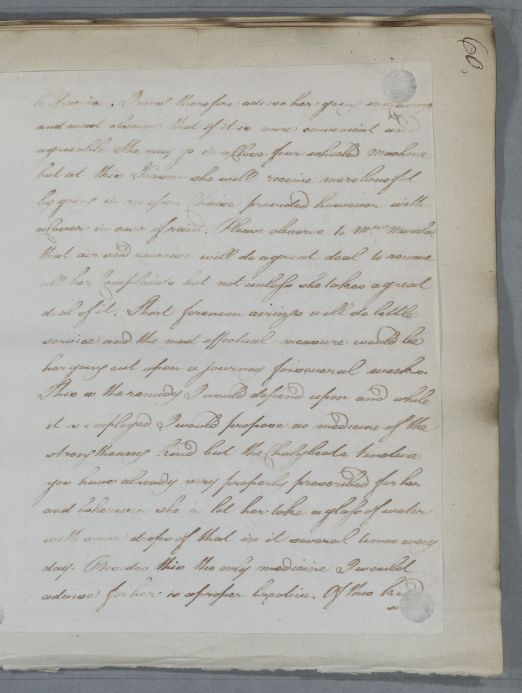 60,
Exercise. I must therefore advise her going in a carriage
and must observe that if it is more convenient and
agreeable she may go in a close four wheeled machine
but at this Season she will receive more benefit
by going in an open Chaise provided however with
a Cover in case of rain. Please observe to Mrs
that air and exercise will do a great deal to remove
all her Complaints but not unless she takes a great
deal of it. Short forenoon airings will do little
service and the most effectual measure would be
her going out upon a journey for several weeks.
This is the remedy I would depend upon and while
it is employed I would propose no medicine of the
strengthening kind but the Chalybeate tincture
you have already very properly prescribed for her
and wherever she is let her take a glass of water
with some drops of that in it several times every
day. Besides this the only medicine I would
advise for her is a proper laxative. Of this kind